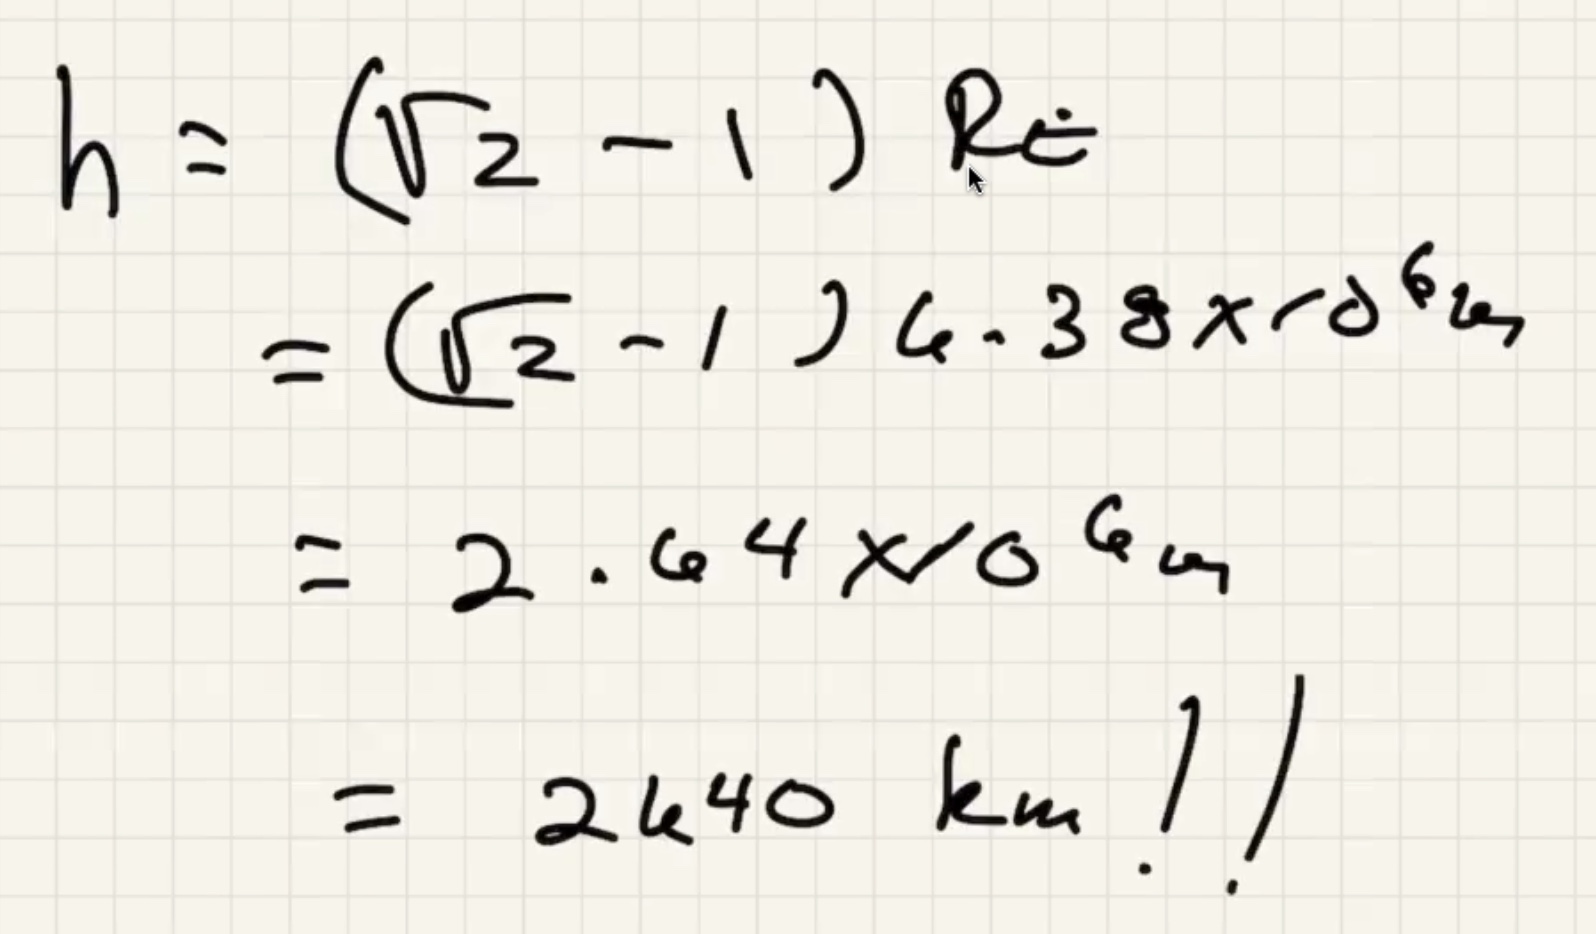 h = (√2 - 1) RE
= (√2 - 1) 6.38 x 10⁶ m
= 2.64 x 10⁶ m
= 2640 km !!